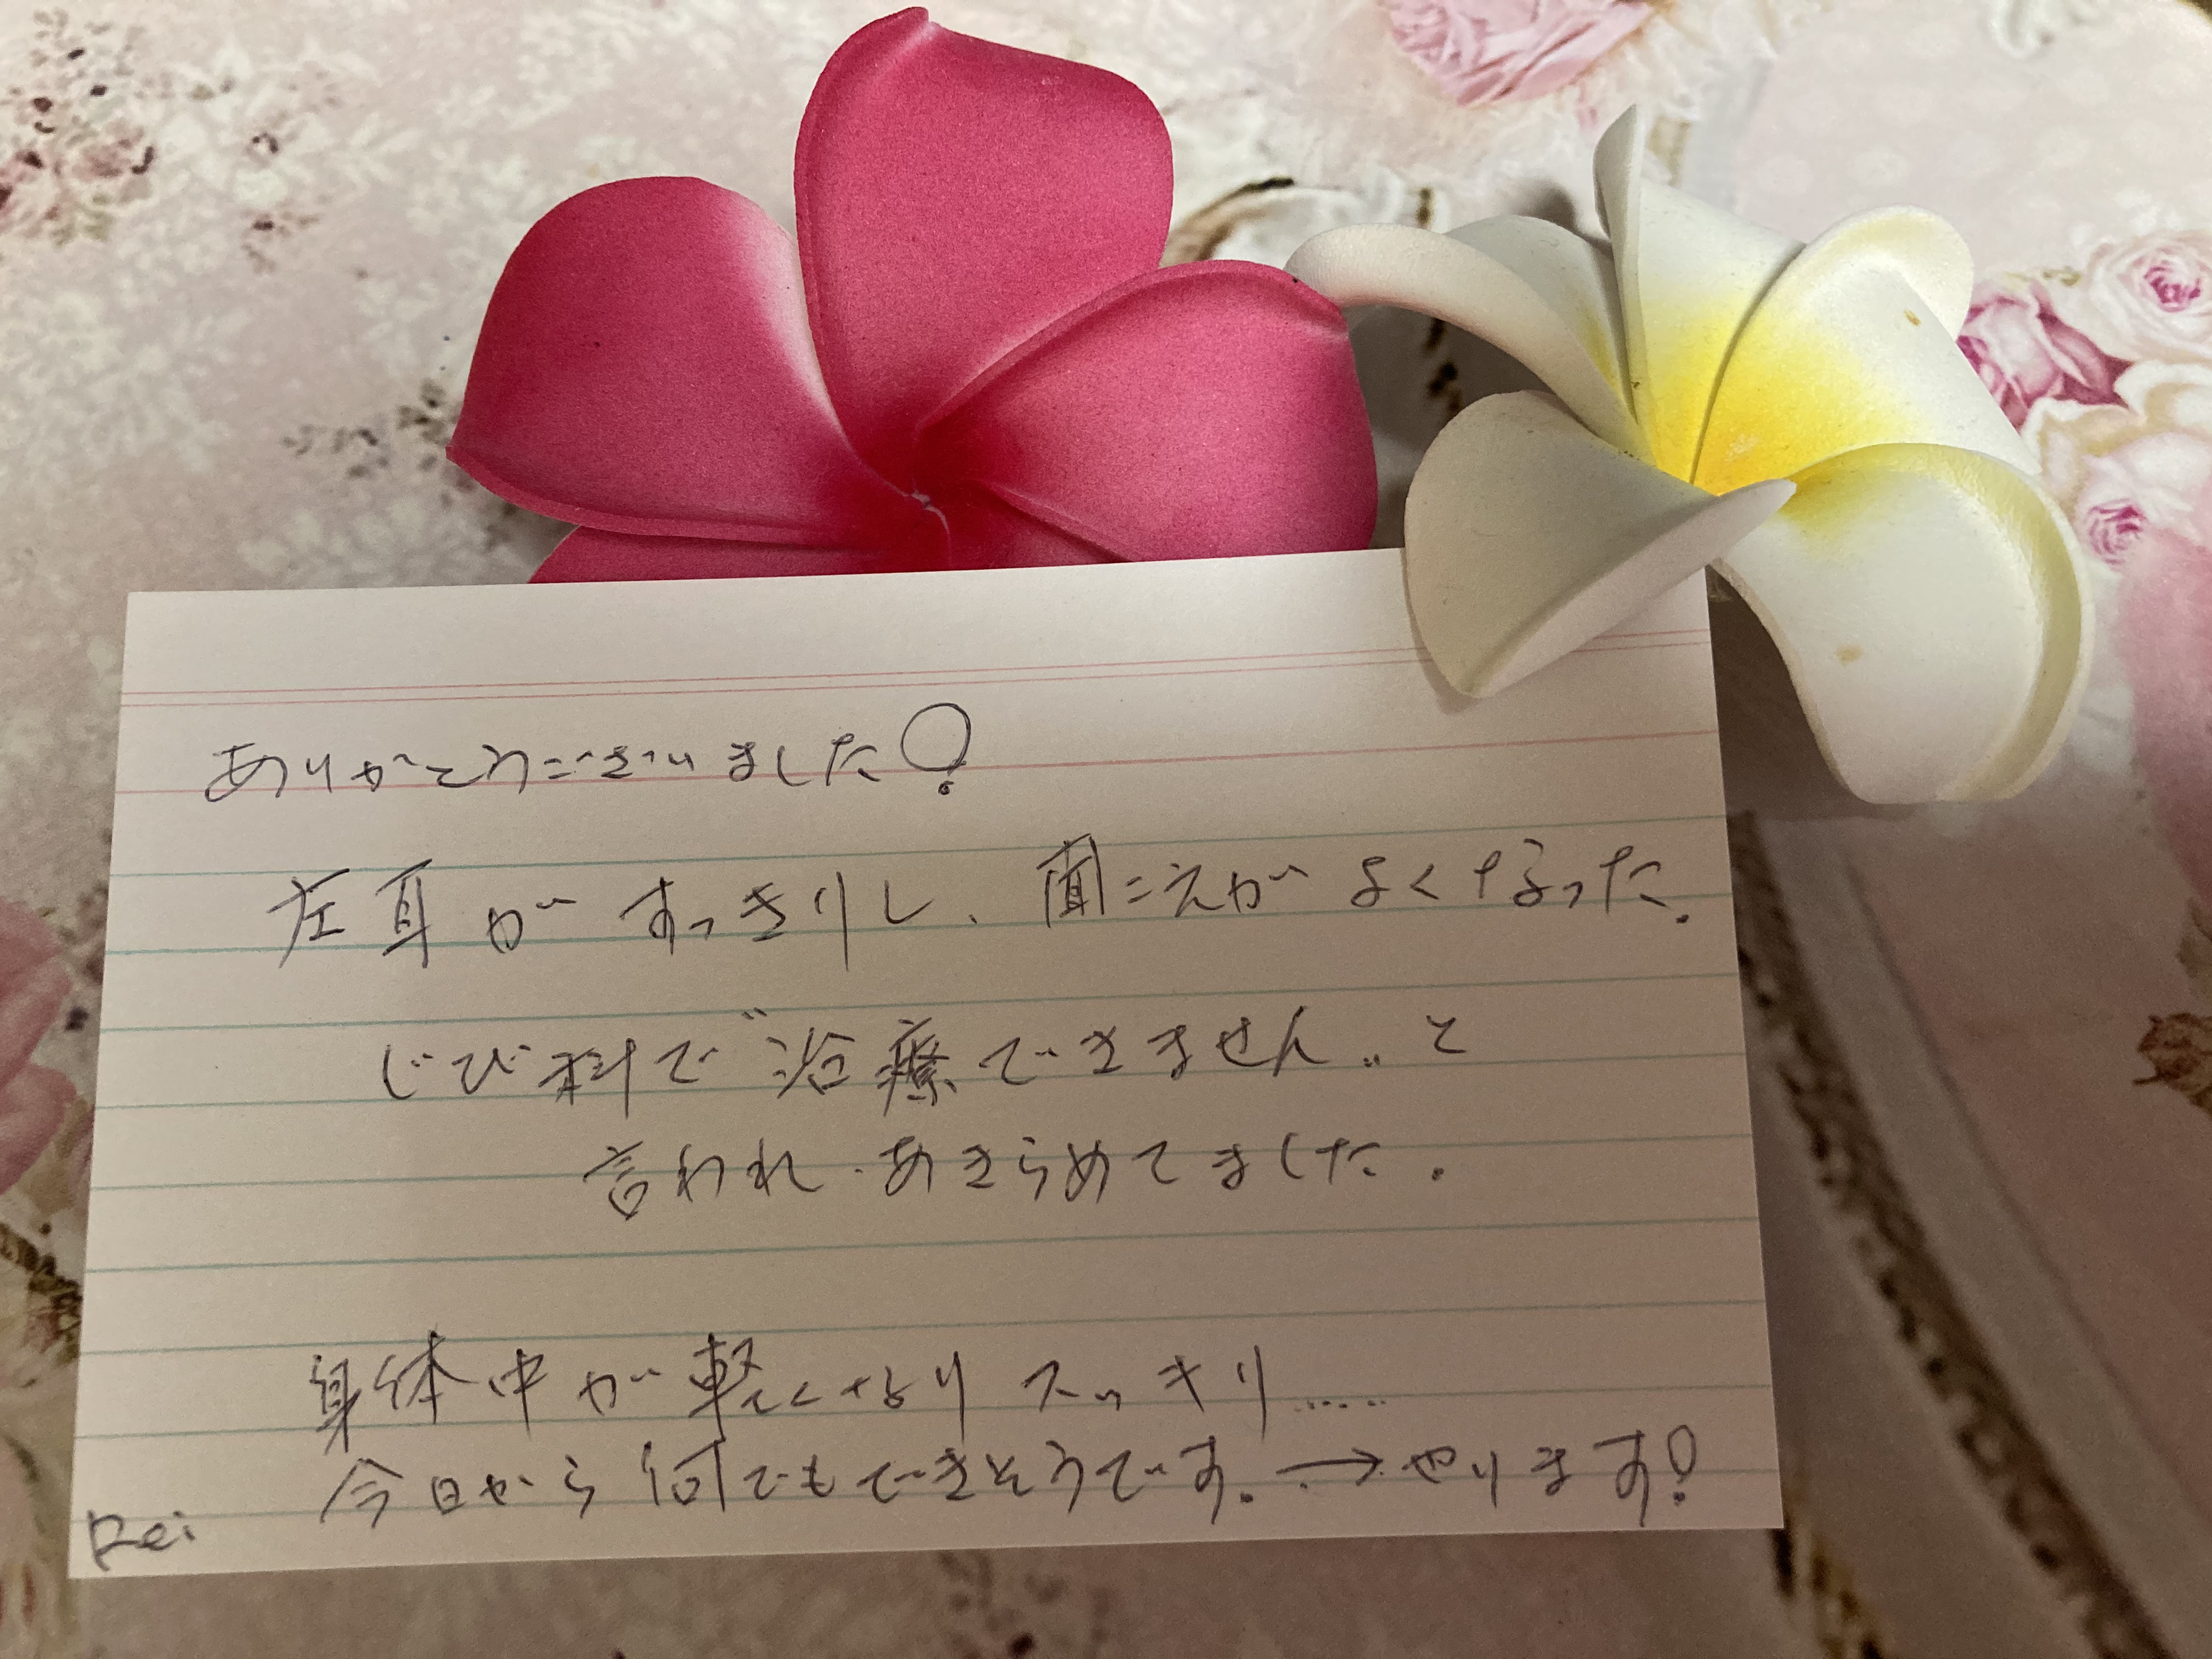 ありがとうございました!
左耳がすっきりし、聞こえがよくなった。
じび科で"治療できません"と
言われ、あきらめてました。
身体中が軽くなりスッキリ……
今日から何でもできそうです。→やります!
Rei